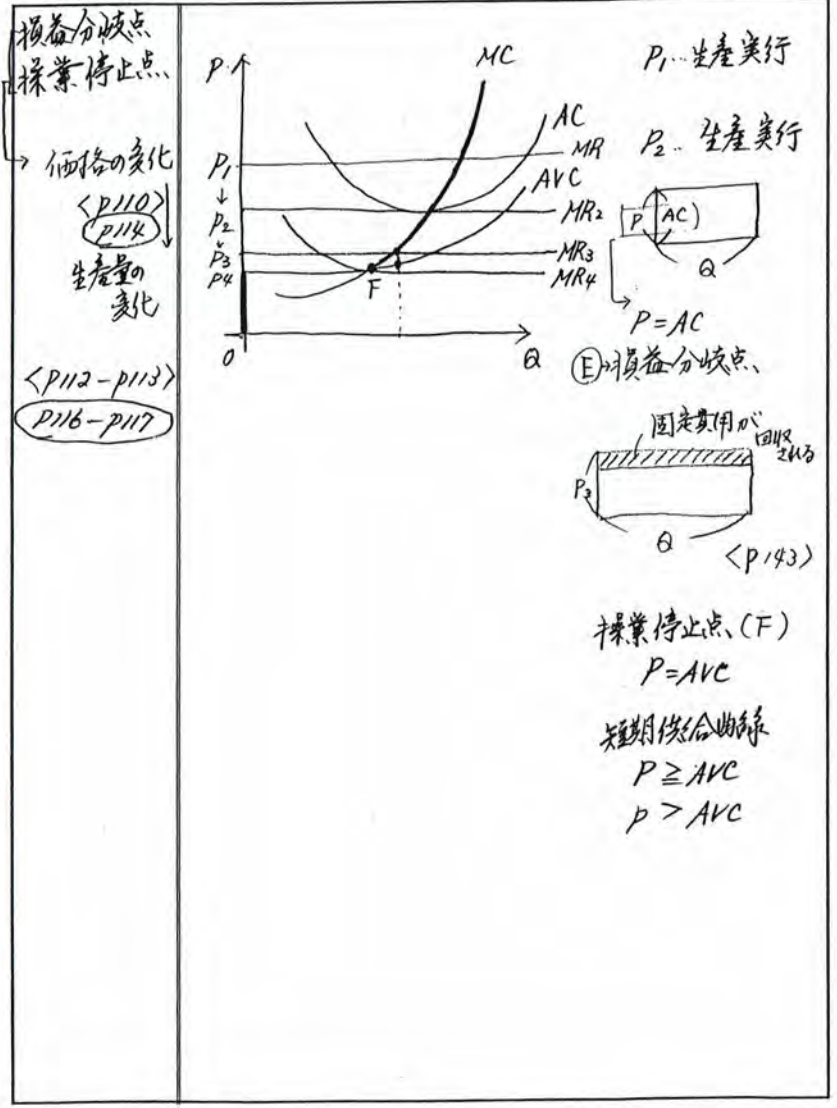 損益分岐点
操業停止点
→ 価格の変化
<P110>
P114
生産量の
変化
<P112-P113>
P116-P117
P
MC
AC
P1
MR
AVC
↓
P2
MR2
↓
P3
MR3
P4
MR4
F
O
Q
P1…生産実行
P2‥生産実行
P
AC
Q
P=AC
Ⓔ→損益分岐点
固定費用が
回収
される
P3
Q
<P143>
操業停止点(F)
P=AVC
短期供給曲線
P≧AVC
P>AVC